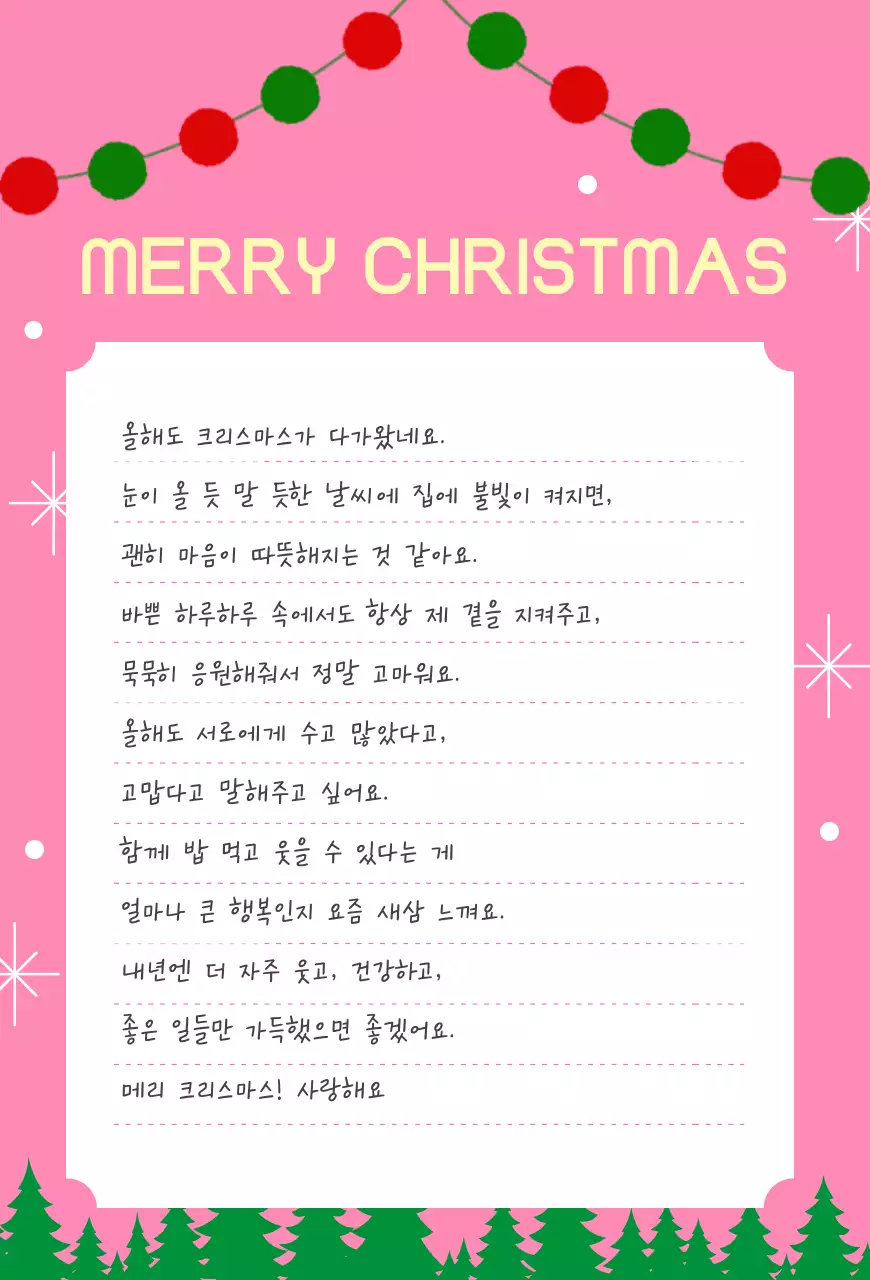 MERRY CHRISTMAS
올해도 크리스마스가 다가왔네요.
눈이 올 듯 말 듯한 날씨에 집에 불빛이 켜지면,
괜히 마음이 따뜻해지는 것 같아요.
바쁜 하루하루 속에서도 항상 제 곁을 지켜주고,
묵묵히 응원해줘서 정말 고마워요.
올해도 서로에게 수고 많았다고,
고맙다고 말해주고 싶어요.
함께 밥 먹고 웃을 수 있다는 게
얼마나 큰 행복인지 요즘 새삼 느껴요.
내년엔 더 자주 웃고, 건강하고,
좋은 일들만 가득했으면 좋겠어요.
메리 크리스마스! 사랑해요